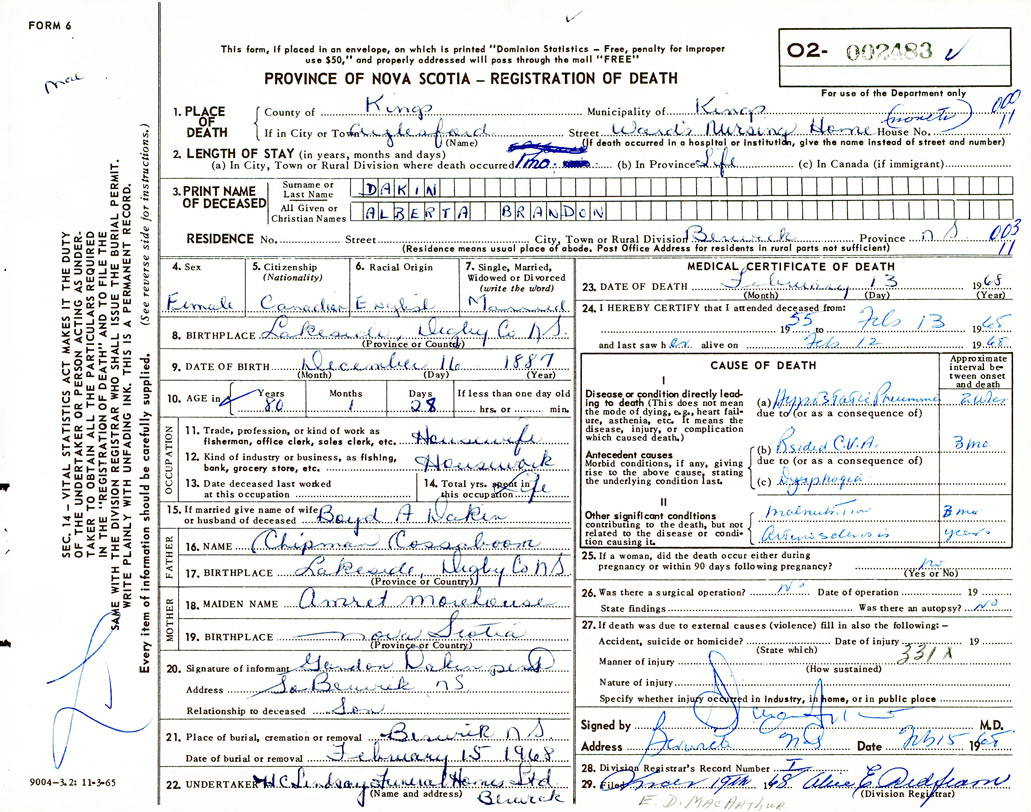 FORM 6
This form, if placed in an envelope, on which is printed "Dominion Statistics – Free, penalty for improper
use $50," and properly addressed will pass through the mail "FREE"
PROVINCE OF NOVA SCOTIA – REGISTRATION OF DEATH
O2- 002483
For use of the Department only
mac
SEC. 14 – VITAL STATISTICS ACT MAKES IT THE DUTY
OF THE UNDERTAKER OR PERSON ACTING AS UNDER-
TAKER TO OBTAIN ALL THE PARTICULARS REQUIRED
IN THE "REGISTRATION OF DEATH" AND TO FILE THE
SAME WITH THE DIVISION REGISTRAR WHO SHALL ISSUE THE BURIAL PERMIT.
WRITE PLAINLY WITH UNFADING INK. THIS IS A PERMANENT RECORD.
Every item of information should be carefully supplied. (See reverse side for instructions.)
1. PLACE OF DEATH County of Kings Municipality of Kings
If in City or Town Aylesford Street Ward's Nursing Home House No.
(Name) (If death occurred in a hospital or institution, give the name instead of street and number)
000
11
2. LENGTH OF STAY (in years, months and days)
(a) In City, Town or Rural Division where death occurred 1 mo (b) In Province Life (c) In Canada (if immigrant)
3. PRINT NAME OF DECEASED Surname or Last Name DAKIN
All Given or Christian Names ALBERTA BRANDON
RESIDENCE No. Street City, Town or Rural Division Berwick Province N S.
(Residence means usual place of abode. Post Office Address for residents in rural parts not sufficient)
003
11
4. Sex Female
5. Citizenship (Nationality) Canadian
6. Racial Origin English
7. Single, Married, Widowed or Divorced (write the word) Married
8. BIRTHPLACE Lakeside, Digby Co N S.
(Province or Country)
9. DATE OF BIRTH December 16 1887
(Month) (Day) (Year)
10. AGE in Years 80 Months 1 Days 28 If less than one day old hrs. or min.
OCCUPATION
11. Trade, profession, or kind of work as fisherman, office clerk, sales clerk, etc. Housewife
12. Kind of industry or business, as fishing, bank, grocery store, etc. Housework
13. Date deceased last worked at this occupation
14. Total yrs. spent in this occupation Life
15. If married give name of wife or husband of deceased Boyd A Dakin
FATHER
16. NAME Chipman Cossaboom
17. BIRTHPLACE Lakeside, Digby Co N S
(Province or Country)
MOTHER
18. MAIDEN NAME Amret Morehouse
19. BIRTHPLACE Nova Scotia
(Province or Country)
20. Signature of informant Gordon Dakin per
Address So Berwick, N S
Relationship to deceased Son
21. Place of burial, cremation or removal Berwick N S
Date of burial or removal February 15 1968
22. UNDERTAKER H C Lindsay Funeral Homes Ltd
(Name and address) Berwick
9004–3.2: 11-3-65
MEDICAL CERTIFICATE OF DEATH
23. DATE OF DEATH February 13 1968
(Month) (Day) (Year)
24. I HEREBY CERTIFY that I attended deceased from:
1955 to Feb 13 1968
and last saw her alive on Feb 12 1968
CAUSE OF DEATH
Approximate interval between onset and death
I
Disease or condition directly leading to death (This does not mean the mode of dying, e.g., heart failure, asthenia, etc. It means the disease, injury, or complication which caused death.)
(a) Hypostatic Pneumonia 2 wks
due to (or as a consequence of)
Antecedent causes
Morbid conditions, if any, giving rise to the above cause, stating the underlying condition last.
(b) C.V.A. 3 mo
due to (or as a consequence of)
(c) Dysphagia
II
Other significant conditions contributing to the death, but not related to the disease or condition causing it.
Malnutrition 3 mo
Arteriosclerosis years
25. If a woman, did the death occur either during
pregnancy or within 90 days following pregnancy? no
(Yes or No)
26. Was there a surgical operation? No Date of operation 19
State findings Was there an autopsy? No
27. If death was due to external causes (violence) fill in also the following: –
Accident, suicide or homicide? Date of injury 19
(State which) 331 X
Manner of injury
(How sustained)
Nature of injury
Specify whether injury occurred in industry, in home, or in public place
Signed by M.D.
Address Berwick NS Date Feb 15 1968
28. Division Registrar's Record Number
29. Filed 19th 1968
(Division Registrar)
E. D. MACARTHUR